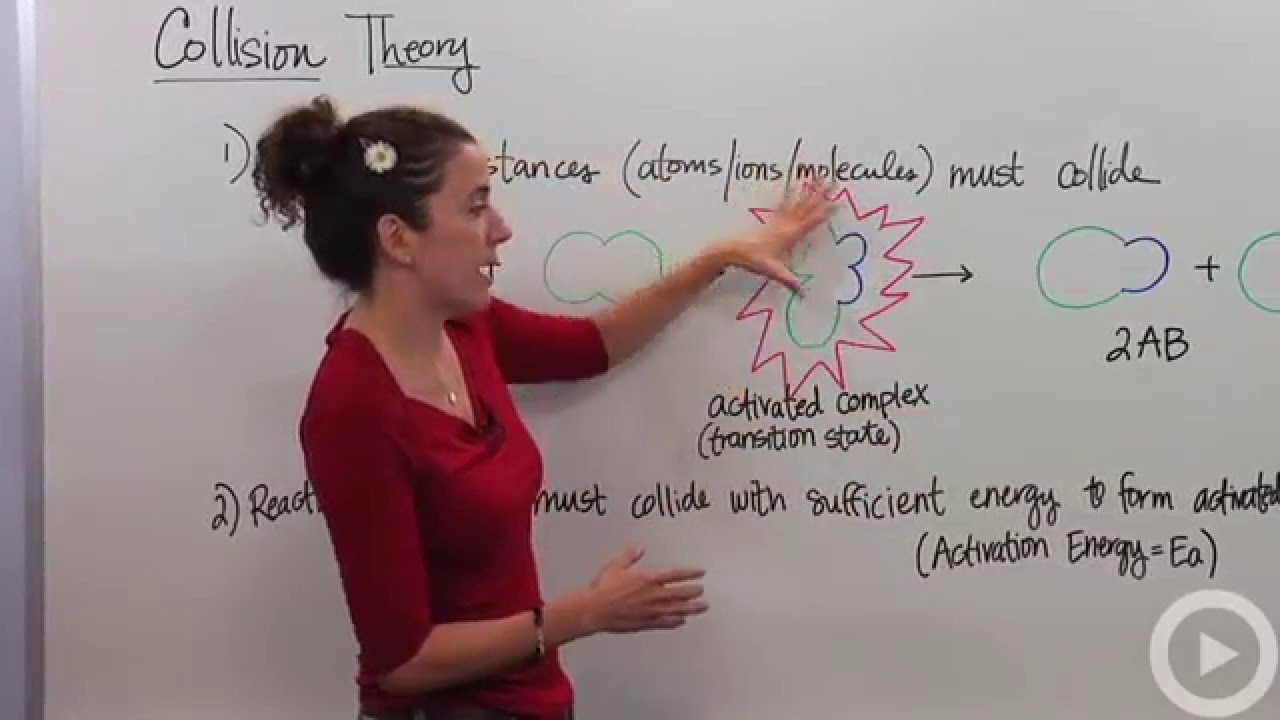 Collision Theory
1) stances (atoms/ions/molecules) must collide
+
2AB
activated complex
(transition state)
2) React must collide with sufficient energy to form activated
(Activation Energy = Ea)